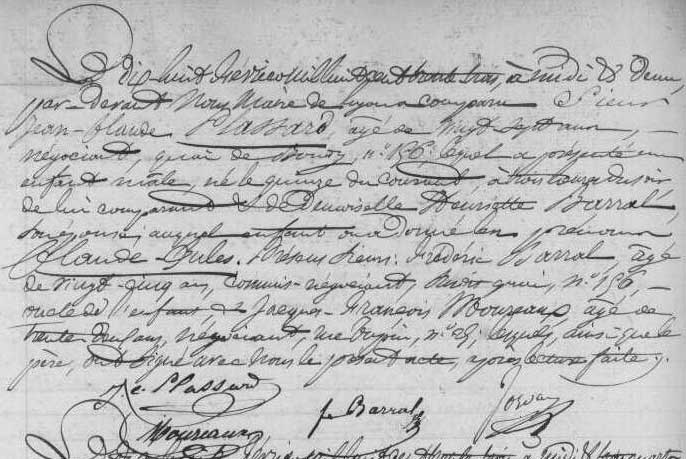 Le dix huit février mil huit cent trente trois, à midi & demi,
par-devant Nous Maire de Lyon a comparu Sieur
Jean-Claude Plassard, âgé de vingt sept ans,
négociant, quai de Bondy, n.º 156, lequel a présenté un
enfant mâle, né le quinze du courant, à trois heures du soir
de lui comparant & de Demoiselle Henriette Barral,
son épouse; auquel enfant on a donné en prénoms
Claude-Jules. Présens Sieurs: Frédéric Barral, âgé
de vingt-cinq ans, commis-négociant, susdit quai, n.º 156,
oncle de l'enfant & Jacques-François Moureaux, âgé de
trente deux ans, négociant, rue Dupin, n.º 29; lesquels, ainsi que le
père, ont signé avec Nous le présent acte, après lecture faite.
J. C. Plassard
Moureaux fc Barral
février mil huit cent trente trois, à midi & trois quarts